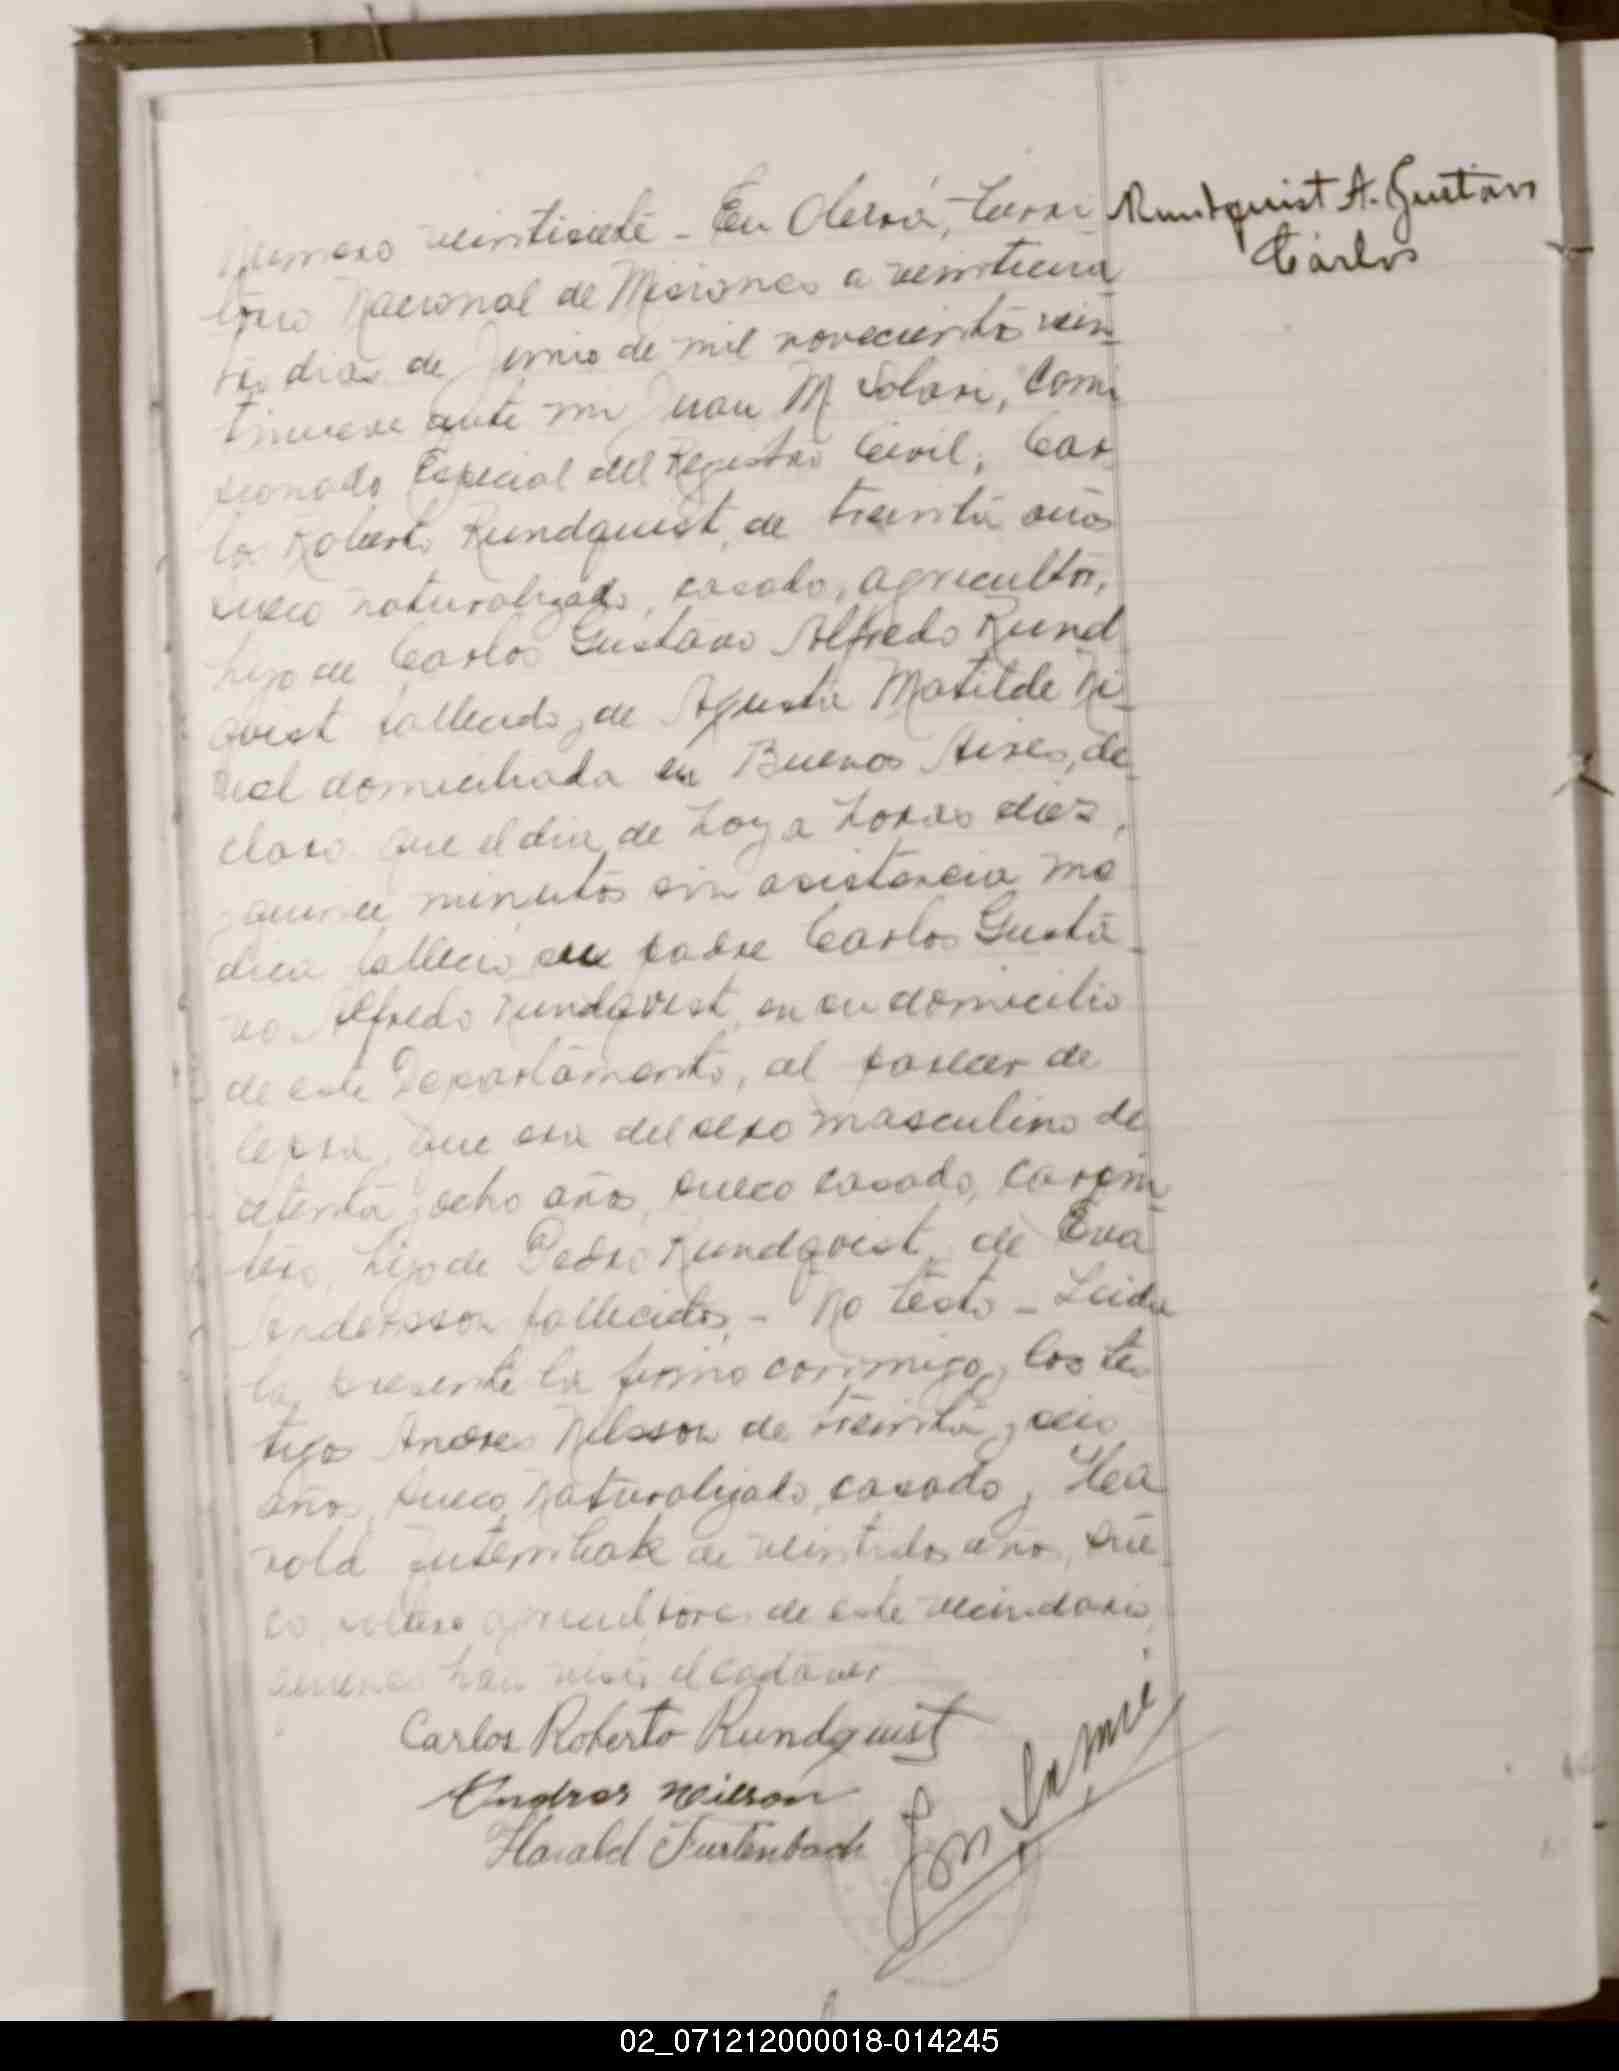 Numero veintisiete - En Oberá, Terri
torio Nacional de Misiones a veinticua
tro dias de Junio de mil novecientos vein
tinueve ante mi Juan M Solari, Comi
sionado Especial del Registro Civil; Car
los Roberto Rundquist, de treinta años
sueco naturalizado, casado, agricultor,
hijo de Carlos Gustavo Alfredo Rund
quist fallecido y de Agusta Matilde
domiciliada en Buenos Aires, de
claró que el dia de hoy a horas diez,
y quince minutos sin asistencia me
dica falleció su padre Carlos Gusta
vo Alfredo Rundqvist en su domicilio
de este Departamento, al parecer de
lepra, que era del sexo masculino de
setenta y ocho años, sueco casado, carpin
tero, hijo de Pedro Rundqvist y de Eva
Andersson fallecidos, - No testó - Leida
la presente la firmó conmigo y los tes
tigos Andres Nilsson de treinta y seis
años, sueco naturalizado, casado y Ha
rold de veintidos años, sue
co, soltero agricultores de este vecindario
quienes han visto el cadaver
Carlos Roberto Rundquist
Andres Nilson
Harald Furtenbach
Rundquist A. Gustavo
Carlos
02_071212000018-014245